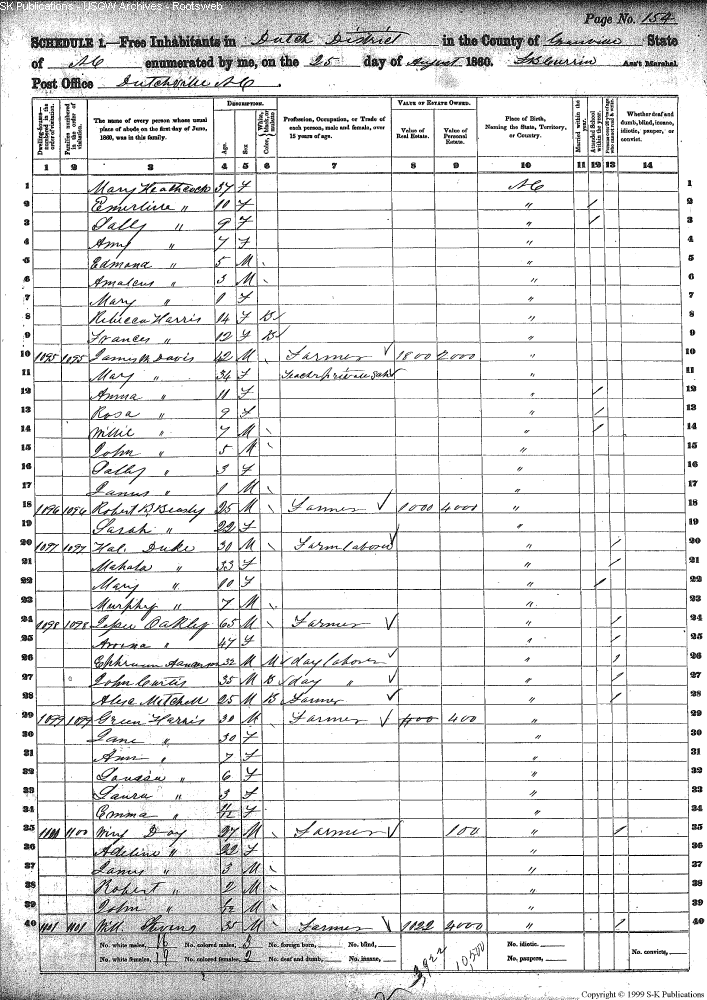 SK Publications - USGW Archives - Rootsweb
Page No. 154
SCHEDULE 1.—Free Inhabitants in Dutch District in the County of Granville State
of NC enumerated by me, on the 25 day of August 1860. Ass't Marshal
Post Office Dutchville NC
Dwelling-houses—numbered in the order of visitation.
Families numbered in the order of visitation.
The name of every person whose usual place of abode on the first day of June, 1860, was in this family.
DESCRIPTION.
Age.
Sex
Color,
Profession, Occupation, or Trade of each person, male and female, over 15 years of age.
VALUE OF ESTATE OWNED.
Value of Real Estate.
Value of Personal Estate.
Place of Birth, Naming the State, Territory, or Country.
Married within the year.
Attended School within the year.
Whether deaf and dumb, blind, insane, idiotic, pauper, or convict.
1 2 3 4 5 6 7 8 9 10 11 12 13 14
1 Mary Heathcock 37 F NC 1
2 " 10 F " / 2
3 Sally " 9 F " / 3
4 Amy " 7 F " 4
5 Edmond " 5 M " 5
6 " 3 M " 6
7 Mary " 1 F " 7
8 Rebecca Harris 14 F B " 8
9 Frances " 12 F B " 9
10 1095 1095 James M Davis 42 M Farmer 1800 2000 " 10
11 Mary " 34 F Teacher private Sch " 11
12 Anna " 11 F " / 12
13 Rosa " 9 F " / 13
14 Willie " 7 M " / 14
15 John " 5 M " 15
16 Sally " 3 F " 16
17 James " 1 M " 17
18 1096 1096 Robert B Beasly 25 M Farmer 1000 4000 " 18
19 Sarah " 22 F " 19
20 1097 1097 Hal. Duke 30 M Farm laborer " / 20
21 Mahala " 33 F " / 21
22 Mary " 10 F " / 22
23 Murphy " 7 M " 23
24 1098 1098 Oakley 65 M Farmer " / 24
25 " 47 F " / 25
26 Ephraim 32 M M day laborer " / 26
27 John Curtis 35 M B day " " / 27
28 Mitchell 25 M B Farmer " / 28
29 1099 1099 Green Harris 30 M Farmer 400 400 " 29
30 Jane " 30 F " 30
31 Ann " 7 F " 31
32 Louisa " 6 F " 32
33 Laura " 3 F " 33
34 Emma " F " 34
35 1100 1100 Day 27 M Farmer 100 " / 35
36 Adeline " 22 F " 36
37 James " 3 M " 37
38 Robert " 2 M " 38
39 John " M " 39
40 1101 1101 Will 35 M Farmer 1022 2000 " / 40
No. white males, 16 No. colored males, 3 No. foreign born, No. blind, No. idiotic,
No. white females, 19 No. colored females, 2 No. deaf and dumb, No. insane, No. paupers, No. convicts,
3922 10500
Copyright © 1999 S-K Publications